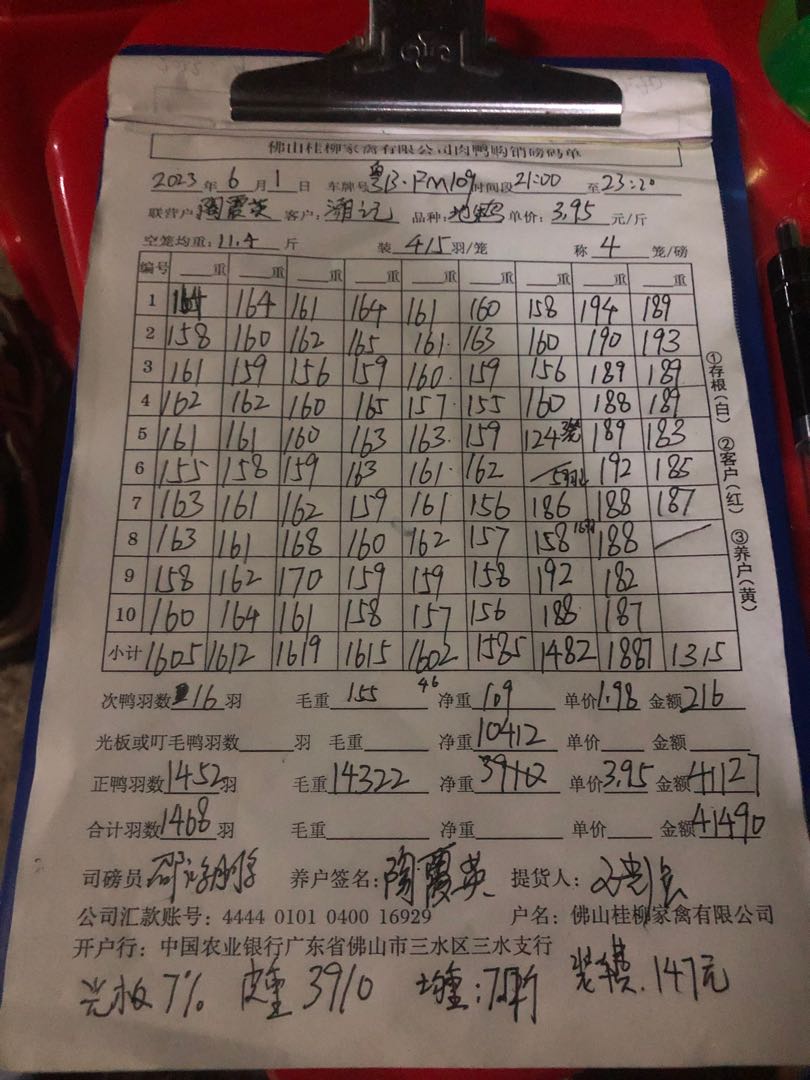 佛山桂柳家禽有限公司肉鸭购销磅码单
2023年6月1日 车牌号粤B·FM109时间段21:00至23:20
联营户陶霞英 客户:湘记 品种:地鸭 单价:3.95元/斤
空笼均重:11.4斤 装4/5羽/笼 称4笼/磅
编号 重 重 重 重 重 重 重 重 重
1 164 164 161 164 161 160 158 194 189
2 158 160 162 165 161 163 160 190 193
3 161 159 156 159 160 159 156 189 189
4 162 162 160 165 157 155 160 188 189
5 161 161 160 163 163 159 124 189 183
6 155 158 159 163 161 162 192 185
7 163 161 162 159 161 156 186 188 187
8 163 161 168 160 162 157 158 188
9 158 162 170 159 159 158 192 182
10 160 164 161 158 157 156 188 187
小计 1605 1612 1619 1615 1602 1585 1482 1887 1315
次鸭羽数16羽 毛重155 46 净重109 单价1.98 金额216
光板或叮毛鸭羽数 羽 毛重 净重10412 单价 金额
正鸭羽数1452羽 毛重14322 净重 单价3.95 金额41127
合计羽数1468羽 毛重 净重 单价 金额41490
司磅员 养户签名:陶霞英 提货人:
公司汇款账号:4444 0101 0400 16929 户名:佛山桂柳家禽有限公司
开户行:中国农业银行广东省佛山市三水区三水支行
光板7% 皮重3910 均重: 装车费.147元
①存根(白) ②客户(红) ③养户(黄)